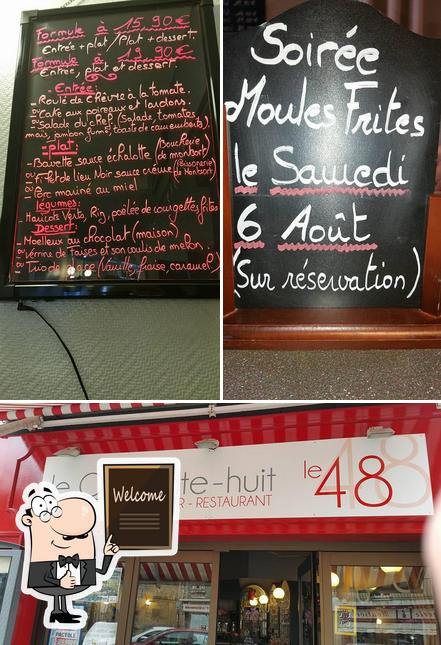 Formule à 15.90€
Entrée + plat / Plat + dessert
Formule à 19.90€
Entrée, plat et dessert
-Entrée:
- Roulé de chèvre à la tomate.
ou Cake aux poireaux et lardons
ou - Salade du chef (Salade, tomates,
maïs, jambon fumé, toasts de camemberts).
-plat:
- Bavette sauce échalotte (Boucherie de montsort)
ou Filet de lieu Noir sauce crème (Poissonerie de Montsort)
ou Porc mariné au miel
légumes:
Haricots Verts, Riz, poëlée de courgettes, frites
Dessert:
- Moelleux au chocolat (maison)
ou Verrine de fraises et son coulis de melon.
ou - Trio de glace (Vanille, fraise, caramel)
Soirée
Moules Frites
le Samedi
6 Août
(Sur réservation)
te-huit
R - RESTAURANT
le 48
48
Welcome